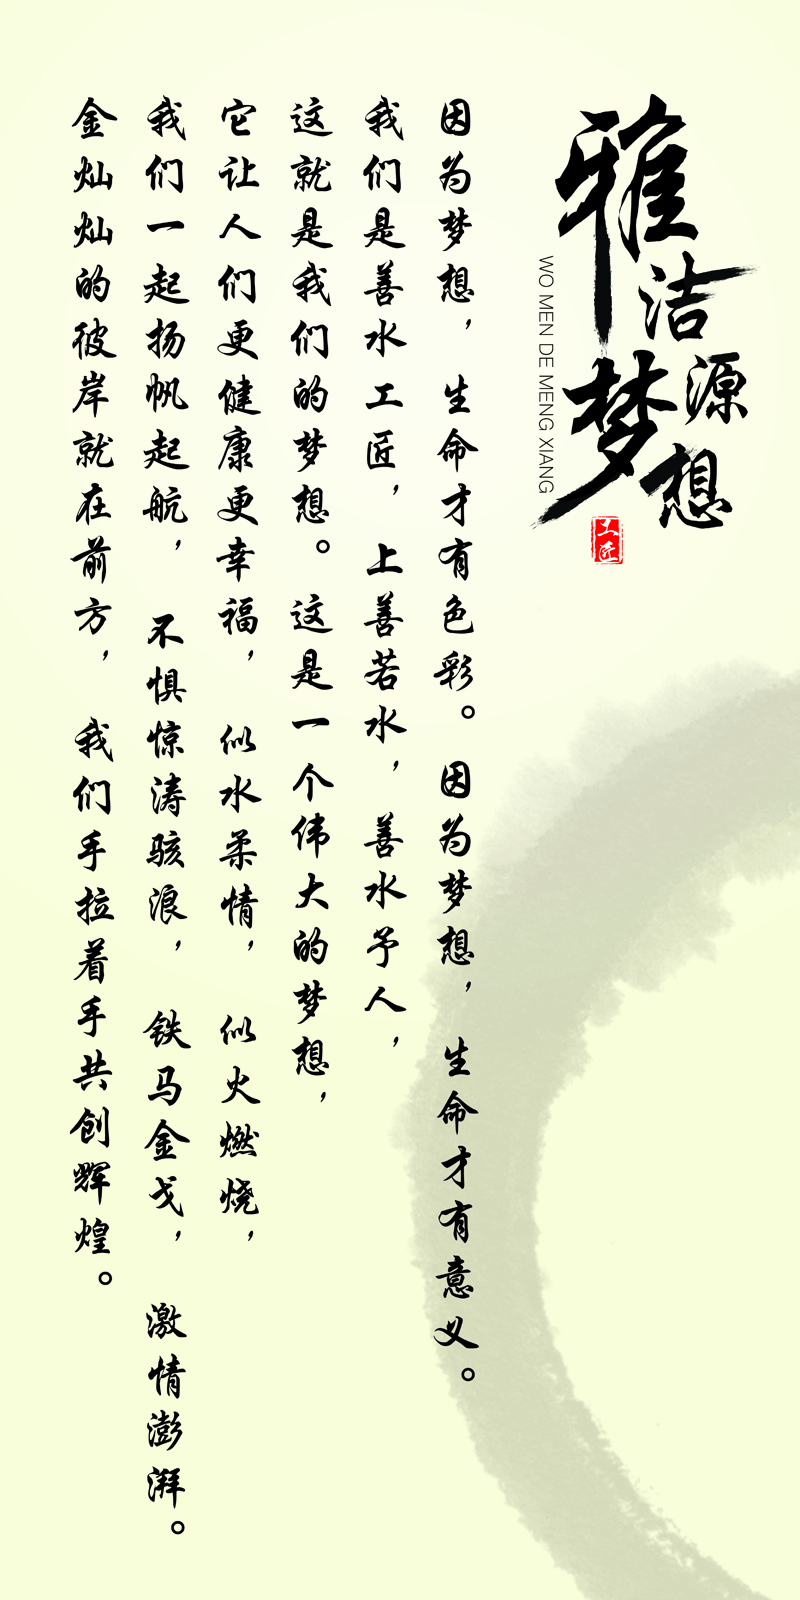 雅洁源
梦想
WO MEN DE MENG XIANG
工匠
因为梦想，生命才有色彩。因为梦想，生命才有意义。
我们是善水工匠，上善若水，善水予人，
这就是我们的梦想。这是一个伟大的梦想，
它让人们更健康更幸福，似水柔情，似火燃烧，
我们一起扬帆起航，不惧惊涛骇浪，铁马金戈，激情澎湃。
金灿灿的彼岸就在前方，我们手拉着手共创辉煌。